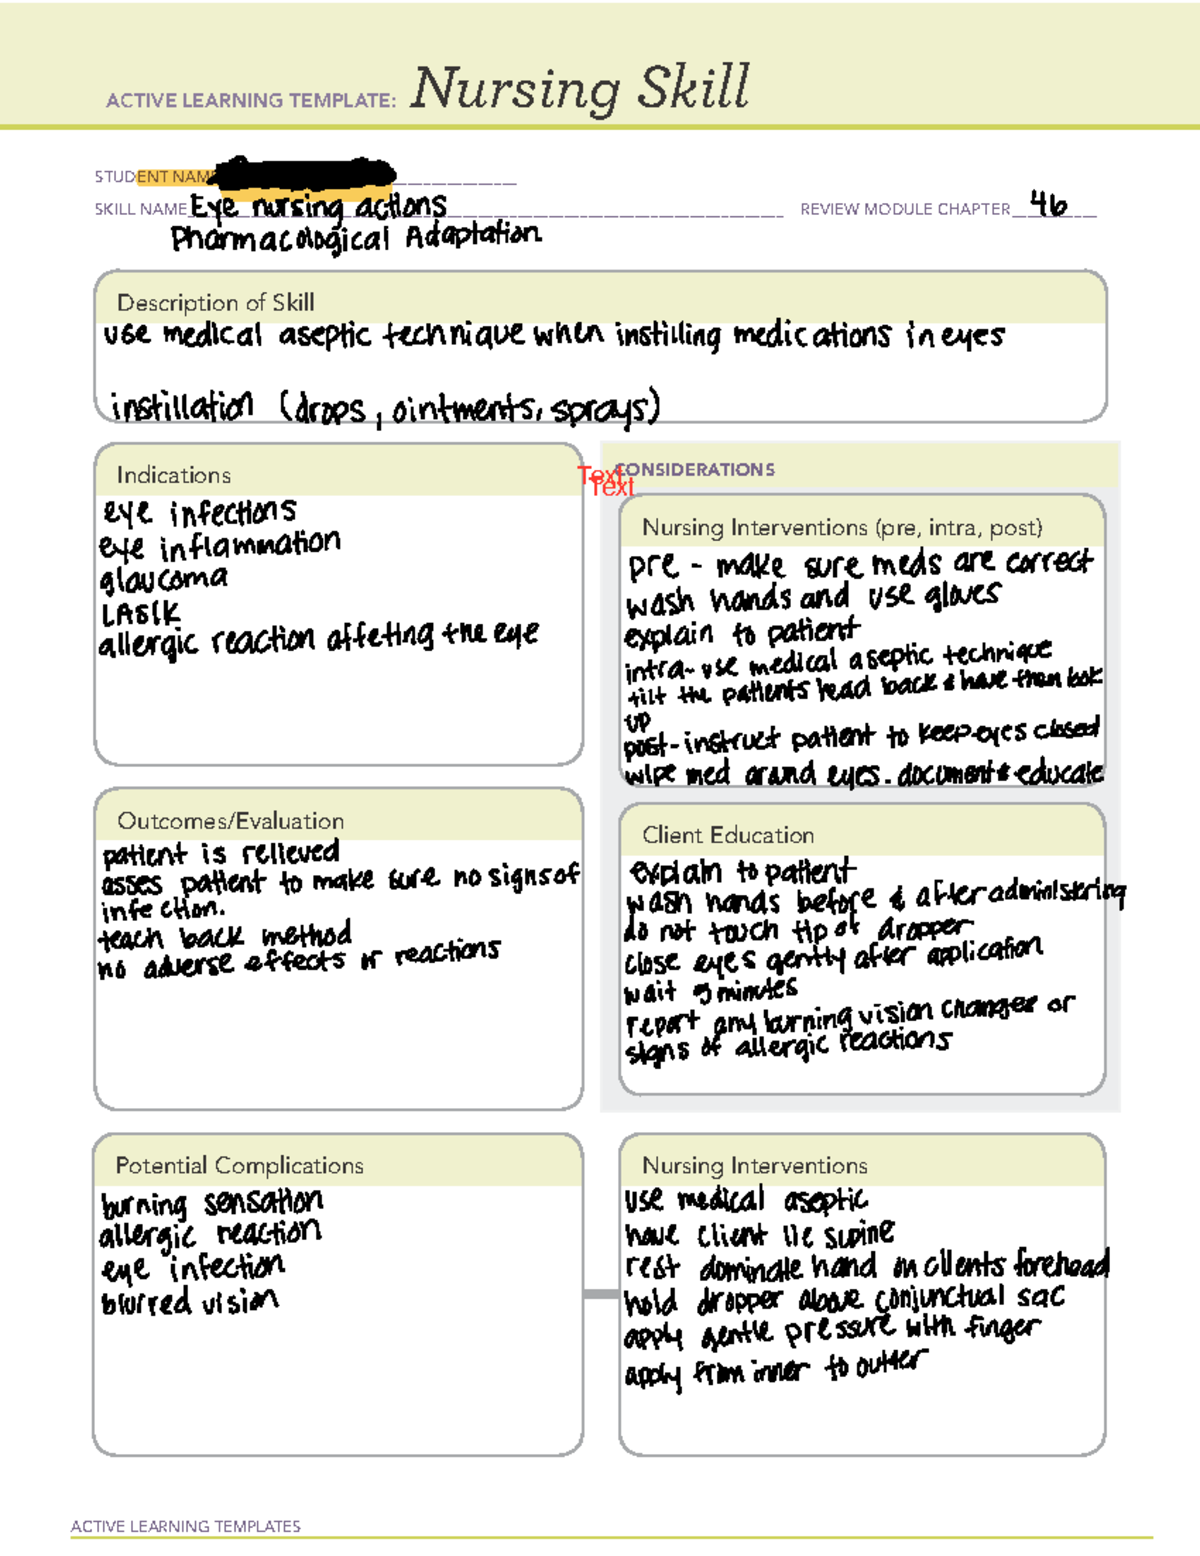 ACTIVE LEARNING TEMPLATE: Nursing Skill
STUDENT NAM
SKILL NAME Eye nursing actions REVIEW MODULE CHAPTER 46
Pharmacological Adaptation
Description of Skill
use medical aseptic technique when instilling medications in eyes
instillation (drops, ointments, sprays)
Indications
eye infections
eye inflammation
glaucoma
LASIK
allergic reaction affeting the eye
CONSIDERATIONS
Text
Text
Nursing Interventions (pre, intra, post)
pre - make sure meds are correct
wash hands and use gloves
explain to patient
intra- use medical aseptic technique
tilt the patients head back & have them look
up
post- instruct patient to keep eyes closed
wipe med arand eyes. document & educate
Outcomes/Evaluation
patient is relieved
asses patient to make sure no signs of
infection.
teach back method
no adverse effects or reactions
Client Education
explain to patient
wash hands before & after administering
do not touch tip of dropper
close eyes gently after application
wait 5 minutes
report any burning vision changes or
signs of allergic reactions
Potential Complications
burning sensation
allergic reaction
eye infection
blurred vision
Nursing Interventions
use medical aseptic
have client lie supine
rest dominate hand on clients forehead
hold dropper above conjunctual sac
apply gentle pressure with finger
apply from inner to outter
ACTIVE LEARNING TEMPLATES